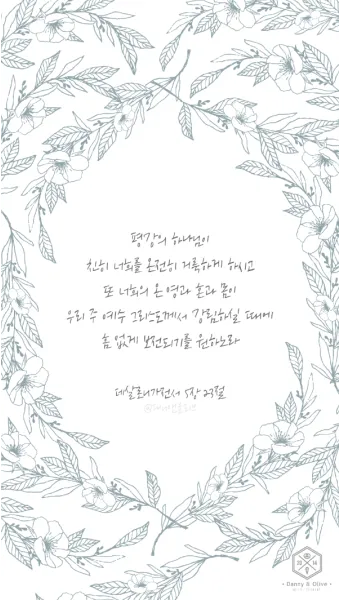 평강의 하나님이
친히 너희를 온전히 거룩하게 하시고
또 너희의 온 영과 혼과 몸이
우리 주 예수 그리스도께서 강림하실 때에
흠 없게 보전되기를 원하노라
데살로니가전서 5장 23절
20 16
• Danny & Olive •